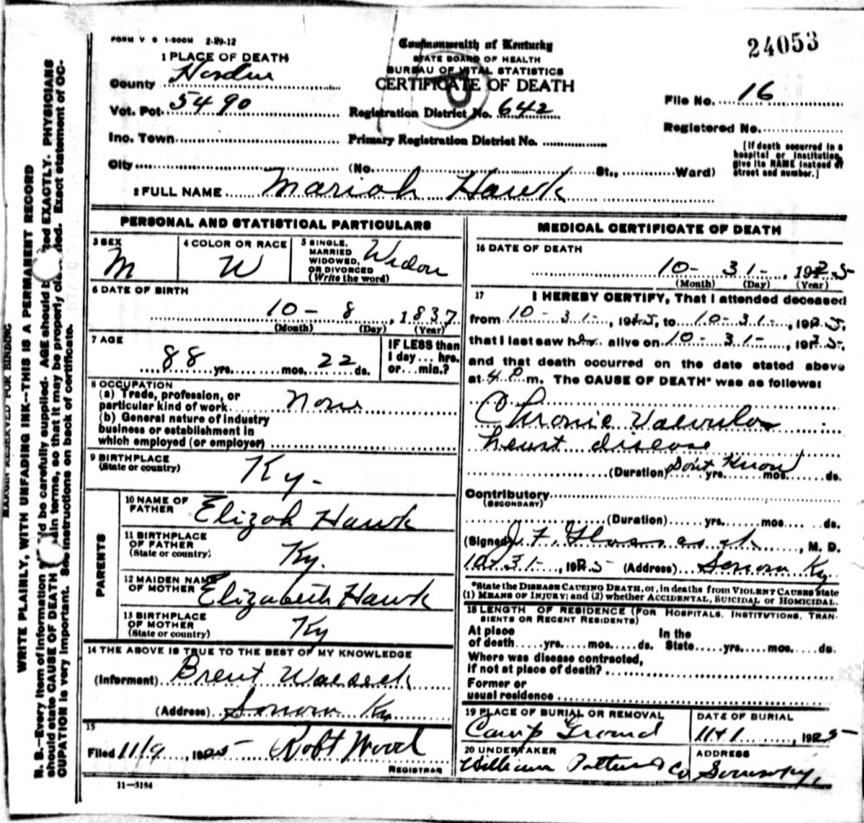 FORM V S 1-500M 2-29-12
Commonwealth of Kentucky
STATE BOARD OF HEALTH
BUREAU OF VITAL STATISTICS
CERTIFICATE OF DEATH
24053
1 PLACE OF DEATH
County Hardin
Vot. Pct. 5490
Registration District No. 642
File No. 16
Ino. Town
Primary Registration District No.
Registered No.
City (No. St., Ward)
[If death occurred in a hospital or institution, give its NAME instead of street and number.]
2 FULL NAME Mariah Hawk
PERSONAL AND STATISTICAL PARTICULARS
3 SEX M
4 COLOR OR RACE W
5 SINGLE, MARRIED WIDOWED, OR DIVORCED (Write the word) Widow
6 DATE OF BIRTH
10 - 8, 1837
(Month) (Day) (Year)
7 AGE
88 yrs. mos. 22 ds.
IF LESS than 1 day... hrs. or... min.?
8 OCCUPATION
(a) Trade, profession, or particular kind of work None
(b) General nature of industry business or establishment in which employed (or employer)
9 BIRTHPLACE (State or country) Ky.
PARENTS
10 NAME OF FATHER Elizah Hawk
11 BIRTHPLACE OF FATHER (State or country) Ky.
12 MAIDEN NAME OF MOTHER Elizabeth Hawk
13 BIRTHPLACE OF MOTHER (State or country) Ky
14 THE ABOVE IS TRUE TO THE BEST OF MY KNOWLEDGE
(Informent) Brent
(Address) Sonora Ky
15
Filed 11/9, 1925 Robt Wood
REGISTRAR
11-3184
MEDICAL CERTIFICATE OF DEATH
16 DATE OF DEATH
10 - 31 -, 1925
(Month) (Day) (Year)
17 I HEREBY CERTIFY, That I attended deceased
from 10-31-, 1925, to 10-31-, 1925,
that I last saw her alive on 10-31-, 1925,
and that death occurred on the date stated above
at 4 P m. The CAUSE OF DEATH* was as follows:
Chronic Valvular
heart disease
(Duration) Don't Know yrs. mos. ds.
Contributory
(SECONDARY)
(Duration) yrs. mos. ds.
(Signed) J. F. , M. D.
10-31-, 1925 (Address) Sonora Ky
*State the DISEASE CAUSING DEATH, or, in deaths from VIOLENT CAUSES state
(1) MEANS OF INJURY; and (2) whether ACCIDENTAL, SUICIDAL or HOMICIDAL.
18 LENGTH OF RESIDENCE (FOR HOSPITALS, INSTITUTIONS, TRANSIENTS OR RECENT RESIDENTS)
At place of death yrs. mos. ds. In the State yrs. mos. ds.
Where was disease contracted,
if not at place of death?
Former or
usual residence
19 PLACE OF BURIAL OR REMOVAL Camp Ground
DATE OF BURIAL 11-1, 1925
20 UNDERTAKER William Co
ADDRESS Sonora Ky.
MARGIN RESERVED FOR BINDING
WRITE PLAINLY, WITH UNFADING INK—THIS IS A PERMANENT RECORD
N. B.—Every item of information be carefully supplied. AGE should EXACTLY. PHYSICIANS
should state CAUSE OF DEATH terms, so that it may be properly Exact statement of OC-
CUPATION is very important. See instructions on back of certificate.